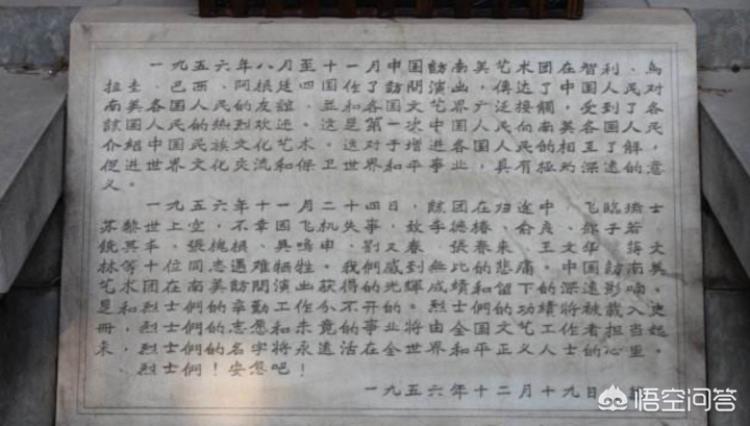 一九五六年八月至十一月中国訪南美艺术团在智利、烏
拉圭、巴西、阿根廷四国作了訪問演出,傳达了中国人民对
南美各国人民的友誼,並和各国文艺界广泛接觸,受到了各
該国人民的热烈欢迎。这是第一次中国人民向南美各国人民
介紹中国民族文化艺术。这对于增進各国人民的相互了解,
促进世界文化交流和保卫世界和平事业,具有極 深遠的意
义。
一九五六年十一月二十四日,該团在归途中,飞臨瑞士
苏黎世上空,不幸因飞机失事, 李德椿、俞 、 子若、
其 、張槐根、吳鳴申、劉 、張春来、王文华、蒋文
林等十位同志遇难牺牲。我們感到無比的悲痛。中国訪南美
艺术团在南美訪問演出获得的光輝成績和留下的深遠影响,
是和烈士們的辛勤工作分不开的。烈士們的功績將被載入史
冊,烈士們的志愿和未竟的事业將由全国文艺工作者担当起
来,烈士們的名字将永遠活在全世界和平正义人士的心里。
烈士們!安息吧!
一九五六年十二月十九日
悟空问答